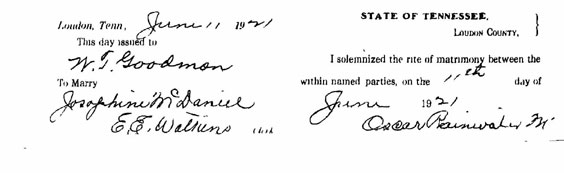 Loudon, Tenn, June 11 1921
This day issued to
W. T. Goodman
To Marry
Josephine McDaniel
E. E. Watkins Clerk
STATE OF TENNESSEE,
LOUDON COUNTY,
I solemnized the rite of matrimony between the
within named parties, on the 11th day of
June 1921
Oscar Rainwater M